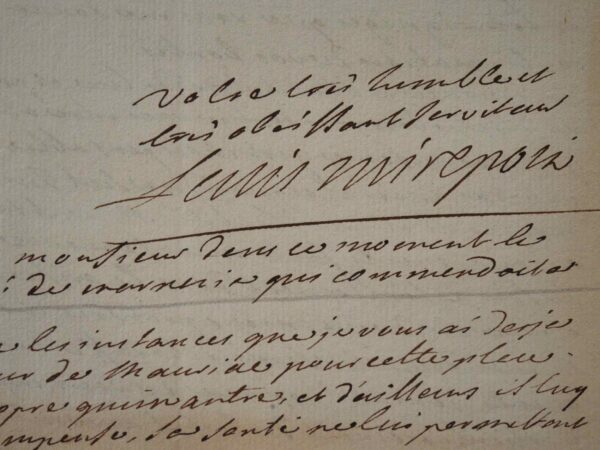 votre tres humble et
tres obeissant serviteur
mirepoix
monsieur dans ce moment le
de qui commendoit a
les instances que je vous ai desja
de Mauriac pour cette place
qu'un autre, et d'ailleurs il luy
sa santé ne lui permettant